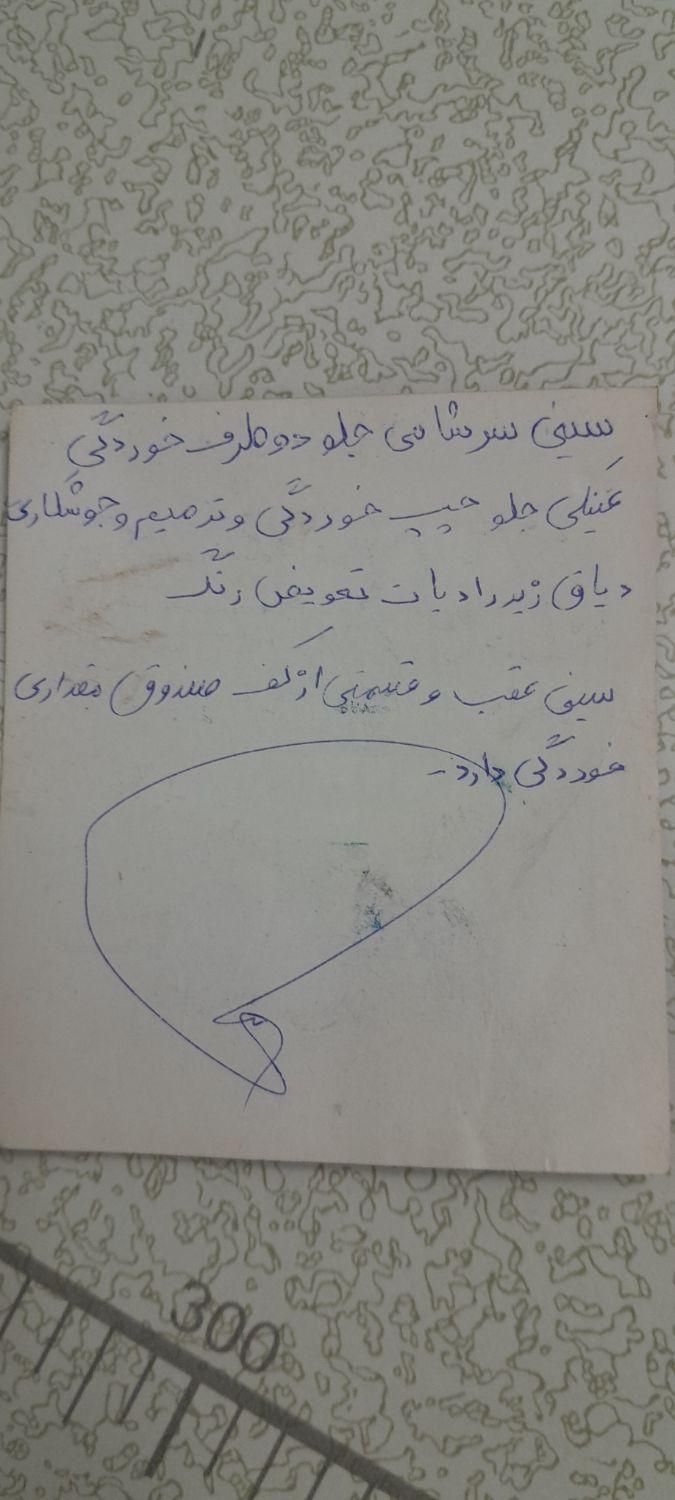 سینی سرشاسی جلو دو طرف خوردگی
گیلگی جلو چپ خوردگی و ترمیم و جوشکاری
دیاق زیر رادیات تعویض رنگ
سینی عقب و قسمتی از کف صندوق مقداری
خوردگی دارد-
300